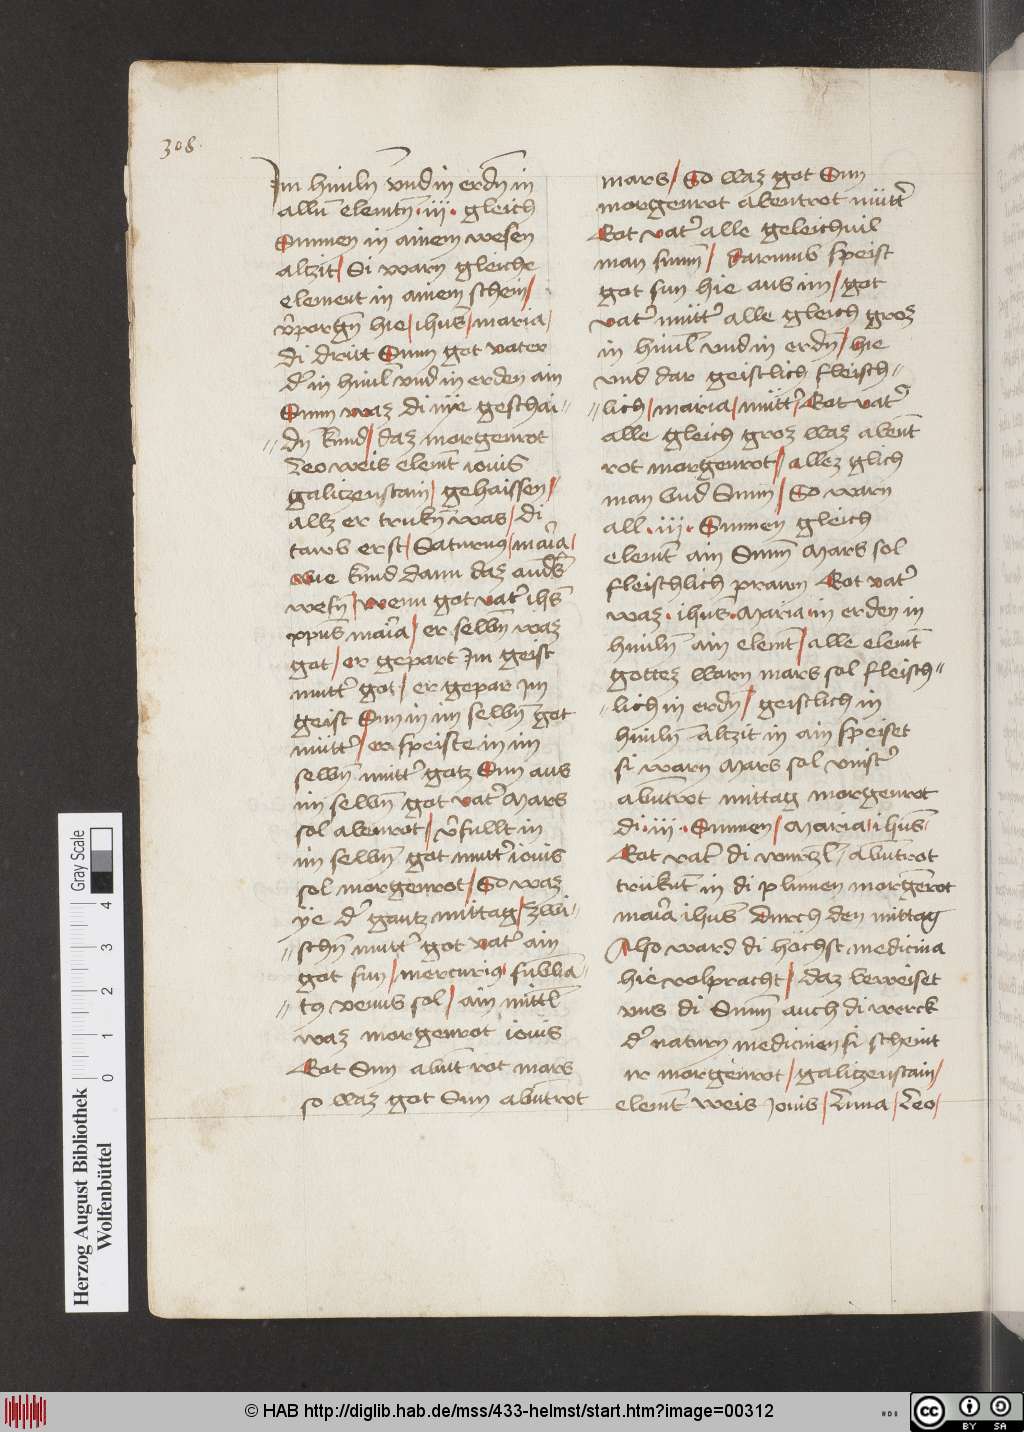 308.
Im himeln vnd in erdn̄ in
allen̄ elemētn̄ · iij · gleich
Sunnen in ainem wesen
altzit / Si warn gleiche
element in ainem schein /
v̄porgn̄ hie / ihus̄ / maria /
di dritt Sunn got vater
d' in himl̄ vnd in erden ain
Sunn waz di nye geschai //
// dn̄ kund / daz morgenrot
Leo weis elemt̄ iouis
galitzenstain / gehaissen /
allz er trukn̄ was / di
tawb erst / Saturnus / maīa /
wie kund dann daz and's
wesn̄ / wenn got vat' ihs̄
xpus̄ maīa / er selbn̄ waz
got / er gepart Im geist
mutt' got / er gepar im
geist Sun in im selbn̄ got
mütt' / er speiste in im
selbn̄ mutt' gotz Sun aus
im selbn̄ got vat' Mars
sol abenrot / v̄fullt in
im selbn̄ got mutt' iouis
sol morgenrot / So waz
ye d' gantz mittag / zwi //
// schn̄ mutt' got vat' ain
got sun / mercurius
// to venus sol / ain mittl̄
waz morgenrot iouis
Rot Sun abent rot mars
so waz got Sun abentrot
mars / So waz got Sun
morgenrot abentrot mütt'
Rot vat' alle geleich wil
man sunn̄ / darumb speist
got sun hie aus im / got
vat' mutt' alle gleich groz
in himl̄ vnd in erdn̄ / hie
vnd dar geistlich fleisch //
// lich / maria / mütt' / Rot vat'
alle gleich groz waz abent
rot morgenrot / allez glich
man vnd Sunn̄ / So warn
all · iij · Sunnen gleich
elemt̄ ain Sunn̄ Mars sol
fleischlich prawn Rot vat'
waz · ihus̄ · Maria · in erden in
himeln̄ ain elemt̄ / alle elemt̄
gottez warn mars sol fleisch //
// lich in erdn̄ / geistlich in
himeln̄ altzit in ain speiset
si warn Mars sol vinst'
abentrot mittag morgenrot
di · iij · Sunnen / Maria / ihus̄
Rot vat' di wurzl̄ / abentrot
trükent in di plumen morgērot
maīa ihus̄ durch den mittag
Also ward di höchst medicina
hie volpracht / daz beweiset
vns di Sunn̄ auch di werck
d' naturn medicinen si scheint
ir morgenrot / galitzenstain /
elemt̄ weis Jouis / Luna / Leo /
Herzog August Bibliothek
Wolfenbüttel
Gray Scale
0 1 2 3 4
© HAB http://diglib.hab.de/mss/433-helmst/start.htm?image=00312
HAB
CC BY SA